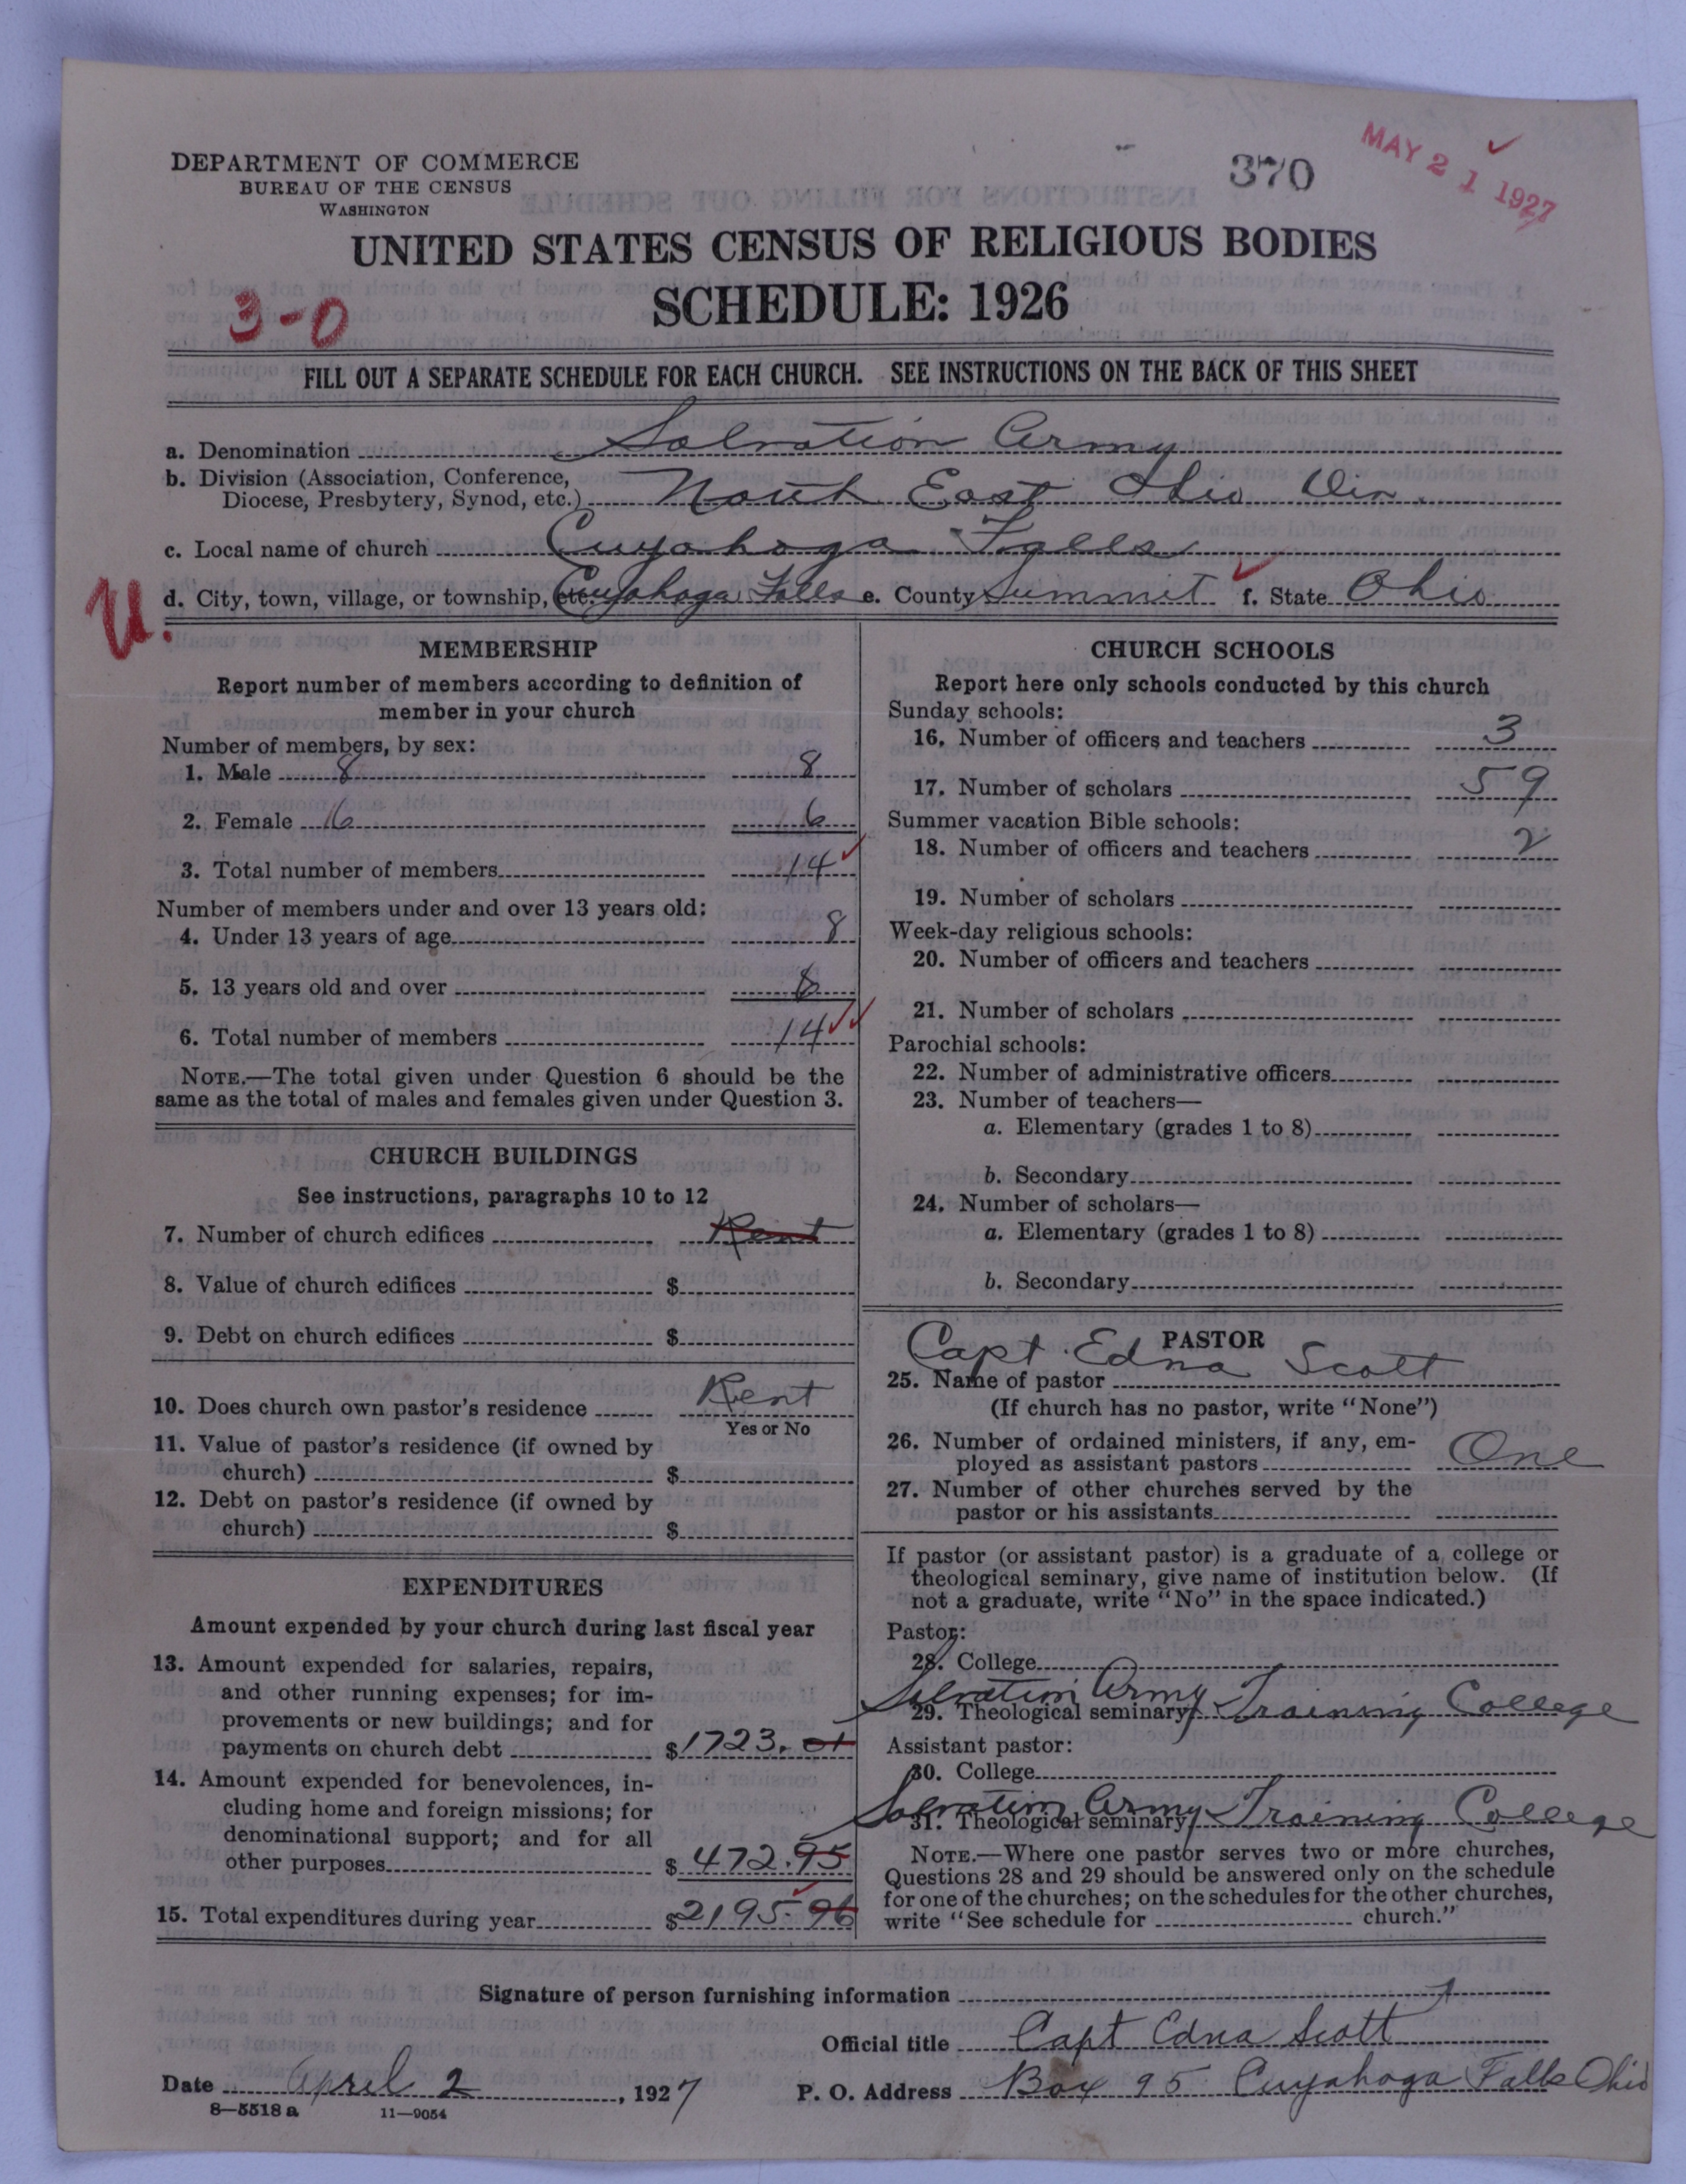 DEPARTMENT OF COMMERCE
BUREAU OF THE CENSUS
WASHINGTON
370
MAY 21 1927
UNITED STATES CENSUS OF RELIGIOUS BODIES
SCHEDULE: 1926
3-0
FILL OUT A SEPARATE SCHEDULE FOR EACH CHURCH. SEE INSTRUCTIONS ON THE BACK OF THIS SHEET
a. Denomination Salvation Army
b. Division (Association, Conference,
Diocese, Presbytery, Synod, etc.) North East Ohio Div.
c. Local name of church Cuyahoga Falls
U.
d. City, town, village, or township, etc. Cuyahoga Falls e. County Summit f. State Ohio
MEMBERSHIP
Report number of members according to definition of
member in your church
Number of members, by sex:
1. Male 8 8
2. Female 6 6
3. Total number of members 14
Number of members under and over 13 years old:
4. Under 13 years of age 8
5. 13 years old and over 6
6. Total number of members 14
NOTE.—The total given under Question 6 should be the
same as the total of males and females given under Question 3.
CHURCH BUILDINGS
See instructions, paragraphs 10 to 12
7. Number of church edifices Rent
8. Value of church edifices $
9. Debt on church edifices $
10. Does church own pastor's residence Rent
Yes or No
11. Value of pastor's residence (if owned by
church) $
12. Debt on pastor's residence (if owned by
church) $
EXPENDITURES
Amount expended by your church during last fiscal year
13. Amount expended for salaries, repairs,
and other running expenses; for im-
provements or new buildings; and for
payments on church debt $1723.01
14. Amount expended for benevolences, in-
cluding home and foreign missions; for
denominational support; and for all
other purposes $472.95
15. Total expenditures during year $2195.96
CHURCH SCHOOLS
Report here only schools conducted by this church
Sunday schools:
16. Number of officers and teachers 3
17. Number of scholars 59
Summer vacation Bible schools:
18. Number of officers and teachers 2
19. Number of scholars
Week-day religious schools:
20. Number of officers and teachers
21. Number of scholars
Parochial schools:
22. Number of administrative officers
23. Number of teachers—
a. Elementary (grades 1 to 8)
b. Secondary
24. Number of scholars—
a. Elementary (grades 1 to 8)
b. Secondary
PASTOR
25. Name of pastor Capt. Edna Scott
(If church has no pastor, write "None")
26. Number of ordained ministers, if any, em-
ployed as assistant pastors One
27. Number of other churches served by the
pastor or his assistants
If pastor (or assistant pastor) is a graduate of a college or
theological seminary, give name of institution below. (If
not a graduate, write "No" in the space indicated.)
Pastor:
28. College
29. Theological seminary Salvation Army Training College
Assistant pastor:
30. College
31. Theological seminary Salvation Army Training College
NOTE.—Where one pastor serves two or more churches,
Questions 28 and 29 should be answered only on the schedule
for one of the churches; on the schedules for the other churches,
write "See schedule for church."
Signature of person furnishing information
Official title Capt Edna Scott
Date April 2, 1927 P. O. Address Box 95 Cuyahoga Falls Ohio
8—5518 a 11—9054